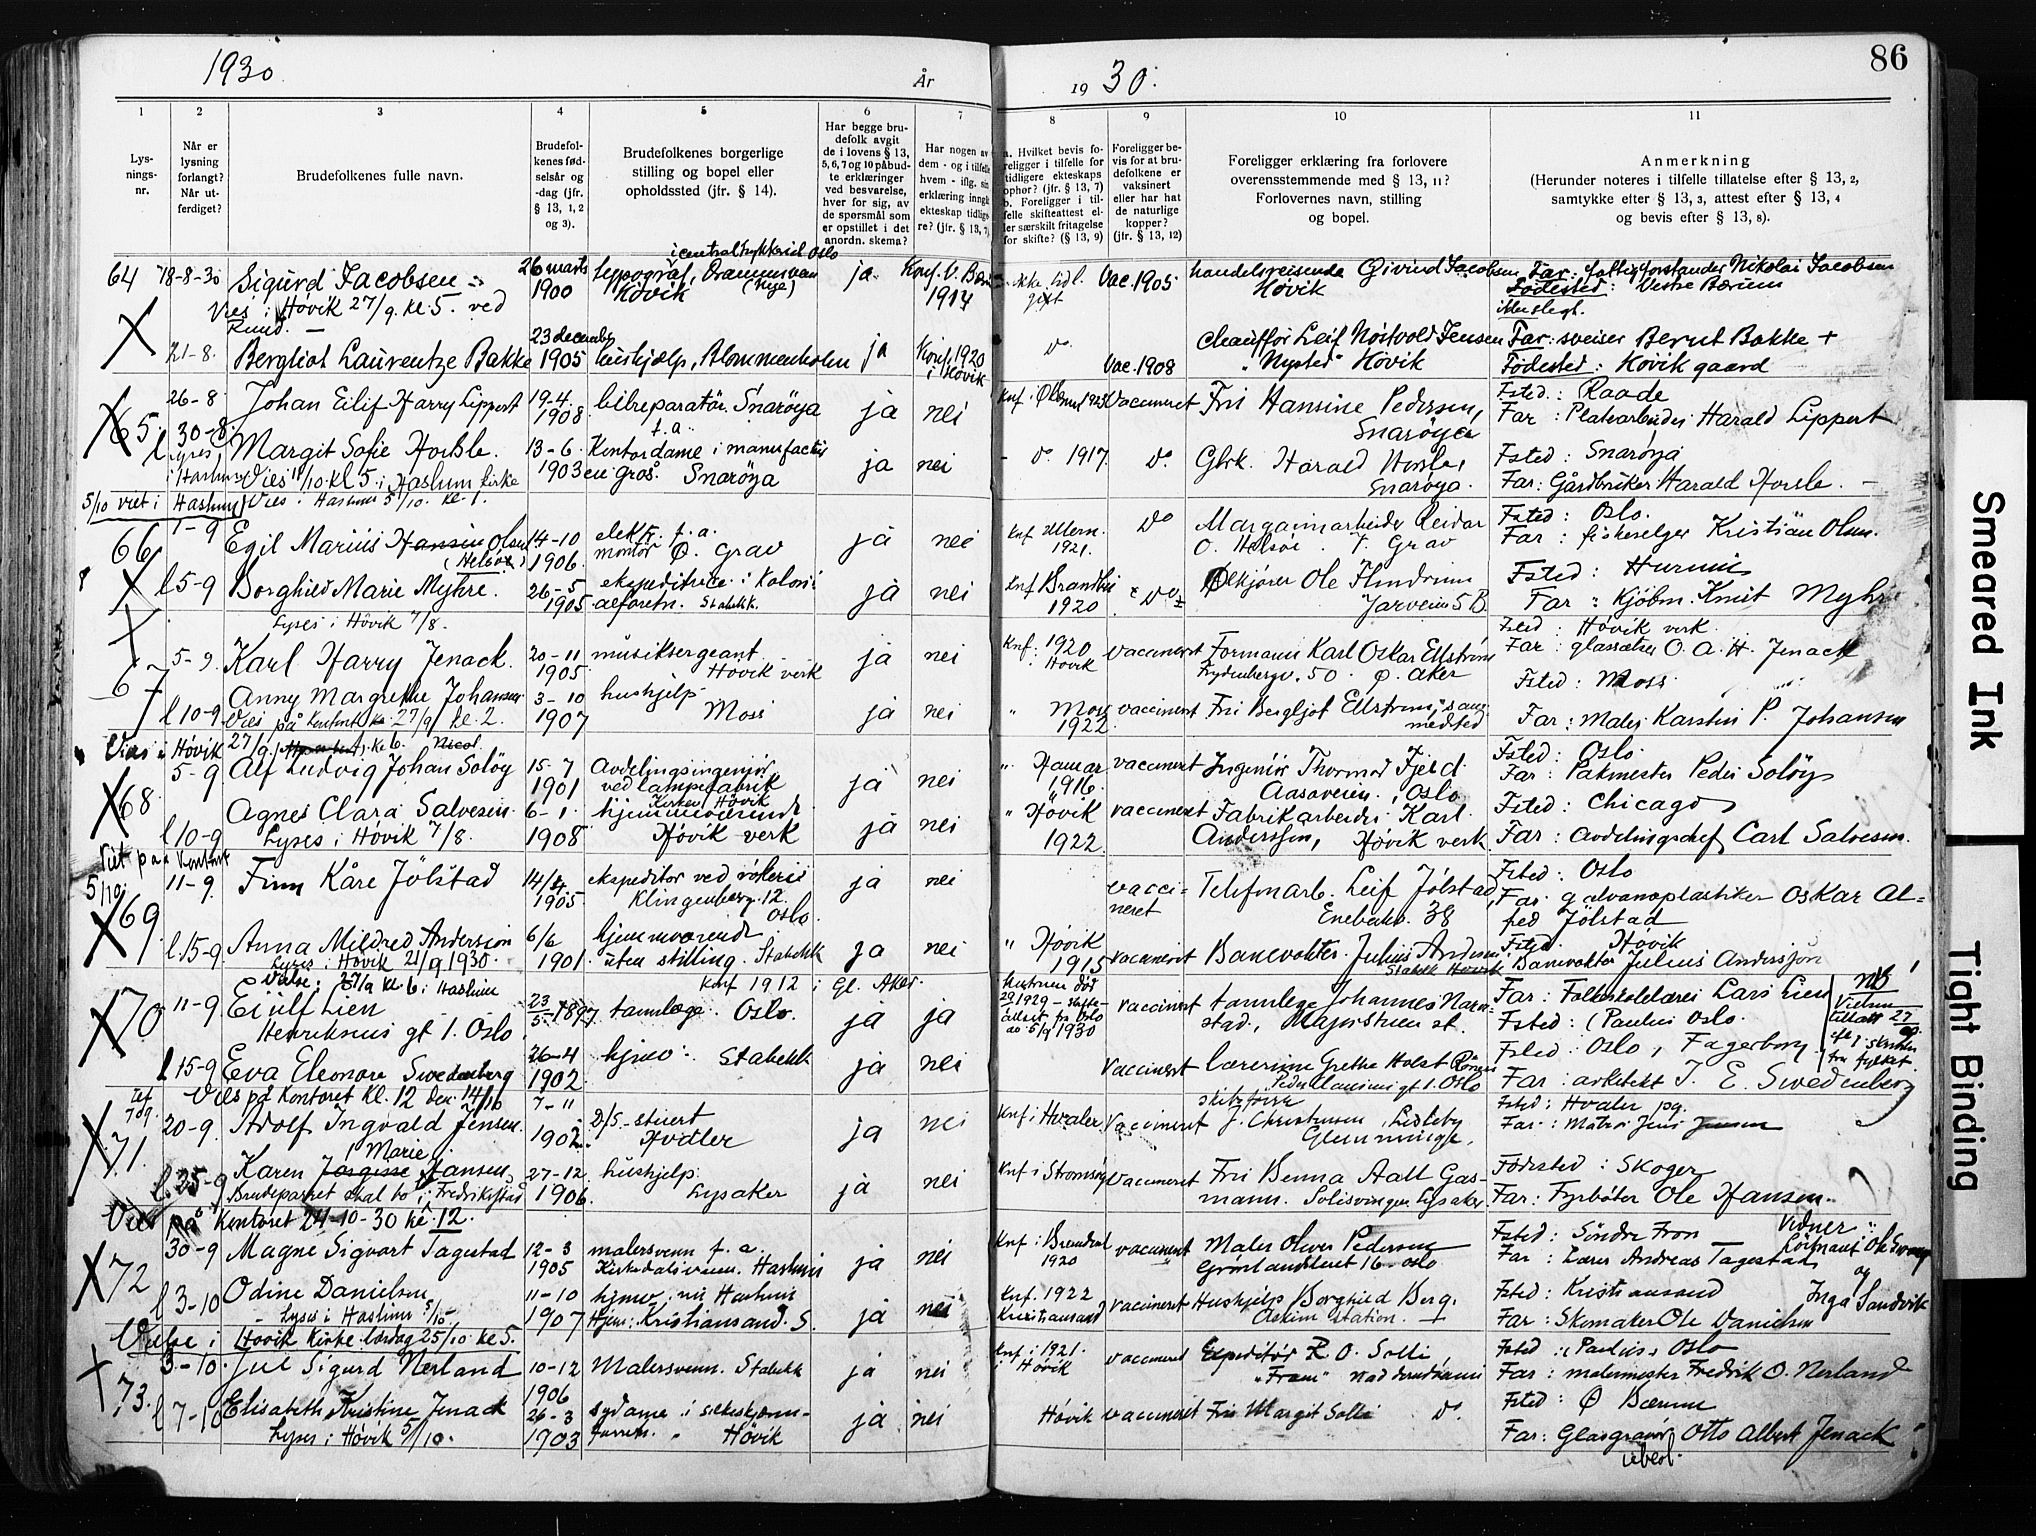 1930
År
1
2
3
4
5
6
7
Lys-
nings-
nr.
Når er
lysning
forlangt?
Når ut-
ferdiget?
Brudefolkenes fulle navn.
Brudefol-
kenes fød-
selsår og
-dag (jfr.
§ 13, 1, 2
og 3).
Brudefolkenes borgerlige
stilling og bopel eller
opholdssted (jfr. § 14).
Har begge bru-
defolk avgit
de i lovens § 13,
5, 6, 7 og 10 påbud-
te erklæringer
ved besvarelse,
hver for sig, av
de spørsmål som
er opstillet i det
anordn. skema?
Har nogen av
dem - og i tilfelle
hvem - iflg. sin
erklæring inngå
ekteskap tidlige
re? (jfr. § 13, 7)
64
18-8-30
Sigurd Jacobsen
26 marts
1900
i centraltrykkeriet Oslo
typograf, Drammensveien
Høvik
ja
Konf. V. Bær
1914
Vies i Høvik 27/9. kl. 5. ved
Ruud.
21-8.
Bergliot Laurentze Bakke
23 december
1905
hushjælp, Blommenholm
ja
Konf. 1920
i Høvik
65
26-8
30-8
Johan Eilif Harry Lippert
19-4.
1908.
bilreparatør. Snarøya
f. a.
ja
nei
Margit Sofie Horsle.
13-6.
1903
Kontordame i manufactur
en gros. Snarøya
ja
nei
Vies 11/10. kl 5. i Haslum kirke
5/10 viet i Haslum
Vies i Haslum 5/10. kl. 1.
66
1-9
Egil Marius Hansen Olsen
(Helsø)
14-10
1906.
elektr. f. a.
montør Ø. Grav
ja
nei
l 5-9
Borghild Marie Myhre.
26-5
1905
ekspeditrice i Koloni
alforetn. Stabekk.
ja
nei
Lyses i Høvik 7/8.
67
5-9.
Karl Harry Jenack.
20-11
1905.
musiksergeant
Høvik verk
ja
nei
l 10-9
Anny Margrethe Johansen
3-10
1907
hushjelp
Moss
ja
nei
Vies på kontoret 27/9 kl. 2.
Vies i Høvik 27/9. kl 6.
68
5-9
Alf Ludvig Johan Soløy
15-7
1901
Avdelingsingeniør
ved lampefabrik
Høvik
ja
nei
l 10-9
Agnes Clara Salvesen.
6-1.
1908.
hjemmeværende
Høvik verk
ja
nei
Lyses i Høvik 7/8.
Viet paa Kontoret
5/10
69
11-9.
Finn Kåre Jølstad
14/4
1905
ekspeditør ved røkeri
Klingenberg. 12.
Oslo.
ja
nei
l.15-9
Anna Mildred Anderssøn
6/6
1901.
hjemmeværend
uten stilling. Stabekk
ja
nei
Lyses i Høvik 21/9 1930.
Vielse: 27/9 kl. 6 i Haslum
Knf 1912 i Gl. Aker.
70
11-9
Eiulf Lien
Henriksens gt 1. Oslo
23/5-1897
tannlæge. Oslo.
ja
ja
l 15-9
Eva Eleonore Swedenborg
26-4
1902.
hjmv: Stabekk
ja
nei
Vies på Kontoret kl. 12 den 14/10
71.
20-9.
Adolf Ingvald Jensen.
7-11
1902.
D/S. stuert
Hvaler
ja
nei
l 25-9
Marie
Karen Hansen.
27-12.
1906.
hushjelp.
Lysaker
ja
nei
Brudeparret skal bo i Fredrikstad
Vies på Kontoret 24-10-30 kl 12.
72
30-9
Magne Sigvart Tagestad
12-3
1905
malersvenn f. a.
Kirkedalsveien. Haslum
ja
nei
l 3-10
Odine Danielsen
11-10
1907
hjmv. nu Haslum
Hjem: Kristiansand. S.
ja
nei
Lyses i Haslum 5/10-
Vielse i Høvik Kirke lørdag 25/10 kl 5.
73.
3-10.
Jul Sigurd Nerland
10-12
1906
Malersvenn. Stabekk
ja
nei
l 7-10
Elisabeth Kristine Jenack
26-3
1903
sydame i silkeskjerm-
forretn. Høvik
ja
nei
Lyses i Høvik 5/10.
86
19 30.
8
9
10
11
a. Hvilket bevis fo-
religger i tilfelle for
tidligere ekteskaps
ophør? (jfr. § 13, 7)
b. Foreligger i til-
felle skifteattest el-
ler særskilt fritagelse
for skifte? (§ 13, 9)
Foreligger be-
vis for at bru-
defolkene er
vaksinert
eller har hat
de naturlige
kopper?
(jfr. § 13, 12)
Foreligger erklæring fra forlovere
overensstemmende med § 13, 11?
Forlovernes navn, stilling
og bopel.
Anmerkning
(Herunder noteres i tilfelle tillatelse efter § 13, 2,
samtykke efter § 13, 3, attest efter § 13, 4
og bevis efter § 13, 8).
ikke tidl.
gift
Vac. 1905
handelsreisende Eivind Jacobsen
Høvik
Far: fattigforstander Nikolai Jacobsen
Fødested: Vestre Bærum
ikke slegt.
do.
Vac. 1908
Chauffør Leif Nøstvold Jensen
"Nysted" Høvik
Far: sveiser Bernt Bakke +
Fødested: Høvik gaard
Vaccineret
Frk Hansine Pedersen,
Snarøya
Fsted.: Raade
Far: Platearbeider Harald Lippert
do 1917.
do.
Gbrk. Harald Horsle,
Snarøya.
Fsted: Snarøya
Far: Gårdbruker Harald Horsle.
Knf Ullern.
1921.
do
Margarinarbeider Reidar
O. Helsøe. Ø. Grav
Fsted: Oslo.
Far: fiskeselger Kristian Olsen.
Knf Brandbu
1920
do
Ølkjører Ole Flindrum
Jarveien 5 B
Fsted: Hurum
Far: Kjøbm. Knut Myhre
Knf: 1920
i Høvik
vaccineret
Formann Karl Oskar Ellstrøm
Frydenbergv. 50. Ø. Aker
Fsted: Høvik verk
Far: glassætser O. A. H. Jenack
" Moss
1922
vaccineret
Frk Bergljot Ellstrøm, sam
mested
Fsted: Moss
Far: Maler Karsten P. Johansen
" Hamar
1916.
vaccineret
Ingeniør Thormod Fjeld
Aasaveien. , Oslo
Fsted: Oslo.
Far: Pakmester Peder Soløy
" Høvik
1922.
vaccineret
Fabrikarbeider Karl
Anderssen, Høvik verk
Fsted: Chicago
Far: Avdelingschef Carl Salvesen.
vacci-
neret
Telefonarb. Leif Jølstad,
Enebakv. 38
Fsted: Oslo
Far: galvanoplastiker Oskar Al-
fred Jølstad
" Høvik
1915
vaccineret
Banevokter. Julius Anderssen
Stabekk Høvik
Fsted. Høvik
Banevokter Julius Anderssøn
Hustruen død
29 1929 - skifte-
attest fra Oslo
do 5/9 1930
vaccineret
tannlege Johannes Nara-
stad, Majorstuen st.
Far: Folkeskolelærer Lars Lien
Fsted: (Paulus Oslo.
NB!
Vaccineret
Lærerinne Grethe Holst
Peder Claussens gt 1. Oslo
Fsted: Oslo, Fagerborg
Far: arkitekt J. E. Swedenborg
Knf i Hvaler
Vaccineret
J. Christensen, Lisleby
Glemminge,
Fsted: Hvaler pg.
Far: Matros Jens Jensen
Knf i Strømsø
vaccineret
Frk Benna Aall Gas-
mann. Solisvingen Lysaker
Fødested: Skoger
Far: Fyrbøter Ole Hansen.
1920
vaccineret
Maler Oliver Pedersen
Grønlandsleret 16. Oslo
Fsted: Søndre Fron
Far: Lærer Andreas Tagestad
Vidner:
Løitnant Ole Svang
og
Inga Sandvik
Knf. 1922
Kristiansand
vaccineret
Hushjelp Borghild Berg.
Askim station.
Fsted: Kristiansand
Far: Skomaker Ole Danielsen
Knf i 1921.
i Høvik
vaccineret
Expeditør R O. Solli
"Fram" Nadderudveien
Fsted: (Paulus) Oslo
Far: malermester Fredrik O. Nerland
Høvik
vaccineret
Frk Margit Solli do.
Fsted: Ø Bærum
Far: Glasgravør Otto Albert Jenack
ubesl.
Smeared Ink
Tight Binding